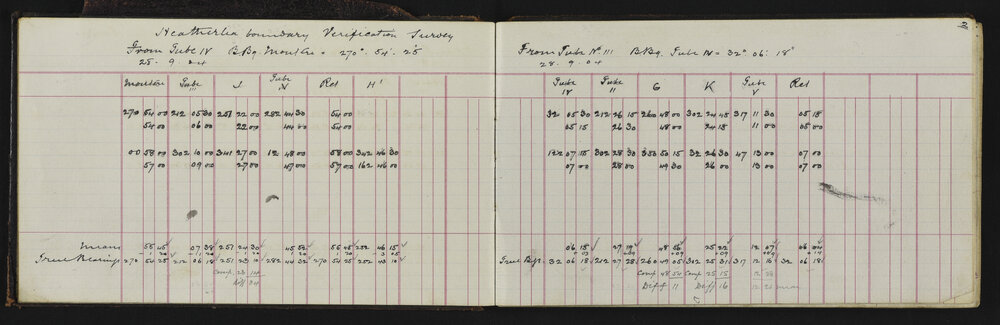 Heatherlea boundary Verification Survey
From Tube IV B.Bg. Montrs = 270° 54' 25"
25. 9. 04
Tube III J Tube Ret H'
270 54 00 212 05 30 251 22 00 282 44 30 54 00
54 00 06 00 22 00 44 00 54 00
0 0 58 00 302 10 00 341 27 00 12 48 00 58 00 342 46 30
57 00 09 00 27 00 47 00 57 00 162 46 00
Means 55 45 07 38 251 24 30 45 52 55 45 252 46 15
True Bearings 270 54 25 212 06 18 251 23 10 282 44 32 270 54 25 252 43 10
Comp 23 44
Diff 34
3
From Tube No III B.Bg. Tube IV = 32° 06' 18"
28. 9. 04
Tube IV Tube II G K Tube V Ret
32 05 30 212 26 15 260 48 00 302 24 45 317 11 30 05 15
05 15 26 30 48 00 24 15 11 00 05 00
122 07 15 302 28 30 350 50 15 32 26 30 47 13 00 07 00
07 00 28 00 49 30 26 00 13 00 07 00
06 15 27 19 48 56 25 22 12 07 06 04
True Bgs. 32 06 18 212 27 28 260 49 05 302 25 31 317 12 16 32 06 18
Comp 48 54 Comp 25 15
Diff 11 Diff 16